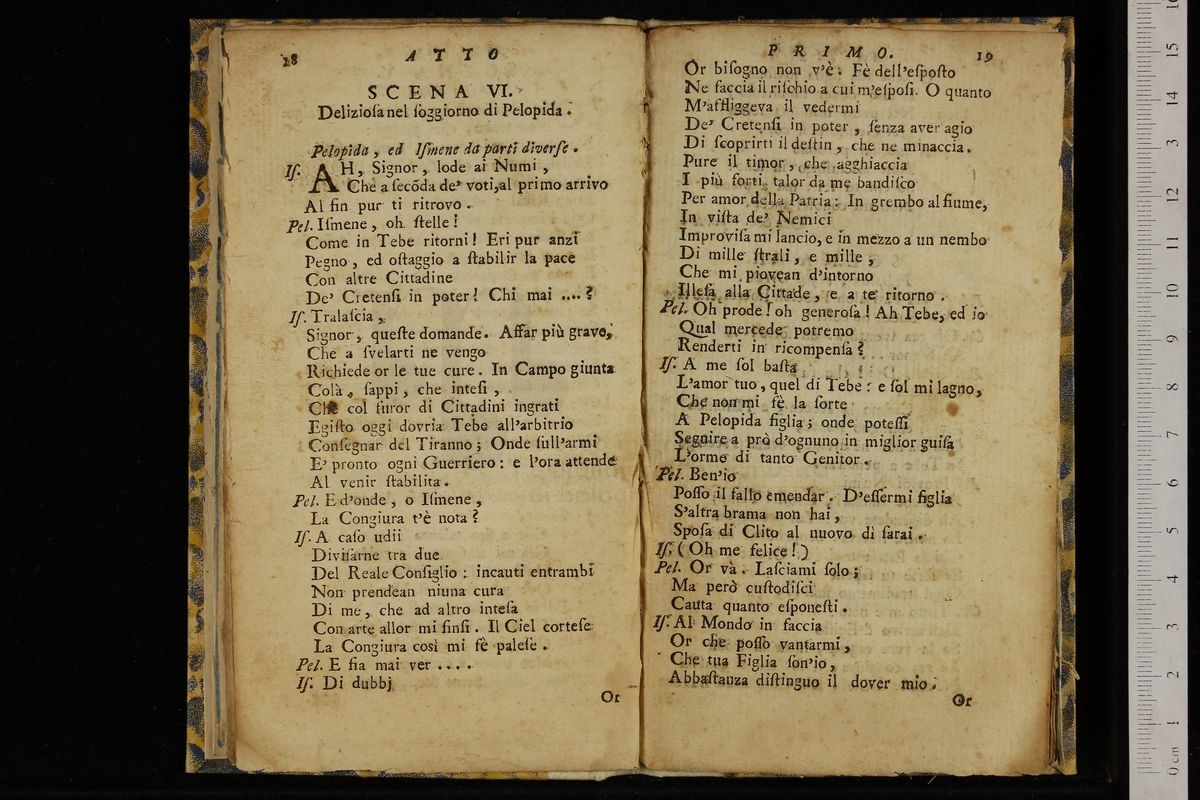 18
ATTO
SCENA VI.
Delizioſa nel ſoggiorno di Pelopida.
Pelopida, ed Iſmene da parti diverſe.
Iſ. AH, Signor, lode ai Numi,
Che a ſecõda de' voti, al primo arrivo
Al fin pur ti ritrovo.
Pel. Iſmene, oh ſtelle!
Come in Tebe ritorni! Eri pur anzi
Pegno, ed oſtaggio a ſtabilir la pace
Con altre Cittadine
De' Cretenſi in poter! Chi mai ....?
Iſ. Tralaſcia,
Signor, queſte domande. Affar più grave,
Che a ſvelarti ne vengo
Richiede or le tue cure. In Campo giunta
Colà, ſappi, che inteſi,
Che col furor di Cittadini ingrati
Egiſto oggi dovria Tebe all'arbitrio
Conſegnar del Tiranno; Onde ſull'armi
E' pronto ogni Guerriero: e l'ora attende
Al venir ſtabilita.
Pel. E d'onde, o Iſmene,
La Congiura t'è nota?
Iſ. A caſo udii
Diviſarne tra due
Del Reale Conſiglio: incauti entrambi
Non prendean niuna cura
Di me, che ad altro inteſa
Con arte allor mi finſi. Il Ciel corteſe
La Congiura così mi fè paleſe.
Pel. E fia mai ver ....
Iſ. Di dubbj
Or
PRIMO.
19
Or biſogno non v'è. Fè dell'eſpoſto
Ne faccia il riſchio a cui m'eſpoſi. O quanto
M'affliggeva il vedermi
De' Cretenſi in poter, ſenza aver agio
Di ſcoprirti il deſtin, che ne minaccia.
Pure il timor, che agghiaccia
I più forti talor da me bandiſco
Per amor della Patria: In grembo al fiume,
In viſta de' Nemici
Improviſa mi lancio, e in mezzo a un nembo
Di mille ſtrali, e mille,
Che mi piovean d'intorno
Illeſa alla Cittade, e a te ritorno.
Pel. Oh prode! oh generoſa! Ah Tebe, ed io
Qual mercede potremo
Renderti in ricompenſa?
Iſ. A me ſol baſta
L'amor tuo, quel di Tebe: e ſol mi lagno,
Che non mi fè la ſorte
A Pelopida figlia; onde poteſſi
Seguire a prò d'ognuno in miglior guiſa
L'orme di tanto Genitor.
Pel. Ben'io
Poſſo il fallo emendar. D'eſſermi figlia
S'altra brama non hai,
Spoſa di Clito al nuovo dì ſarai.
Iſ. (Oh me felice!)
Pel. Or và. Laſciami ſolo;
Ma però cuſtodiſci
Cauta quanto eſponeſti.
Iſ. Al Mondo in faccia
Or che poſſo vantarmi,
Che tua Figlia ſon'io,
Abbaſtanza diſtinguo il dover mio.
Or